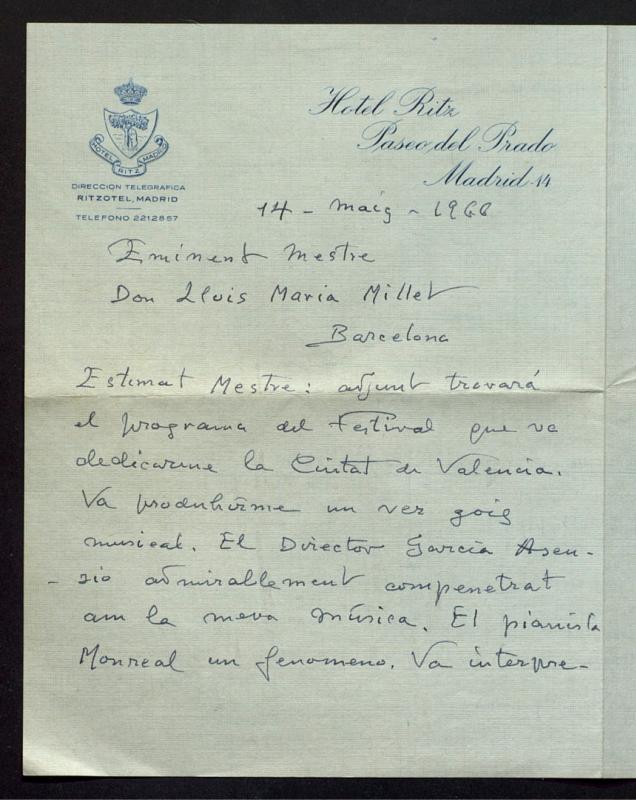 Hotel Ritz
Paseo del Prado
Madrid-14
HOTEL RITZ MADRID
DIRECCION TELEGRAFICA
RITZOTEL, MADRID
TELEFONO 2212857
14 - maig - 1966
Eminent Mestre
Don Lluis Maria Millet
Barcelona
Estimat Mestre: adjunt trovará
el programa del Festival que va
dedicarme la Ciutat de Valencia.
Va produhirme un ver goig
musical. El Director García Asen-
- sio admirablement compenetrat
am la meva música. El pianista
Monreal un fenomeno. Va interpre-